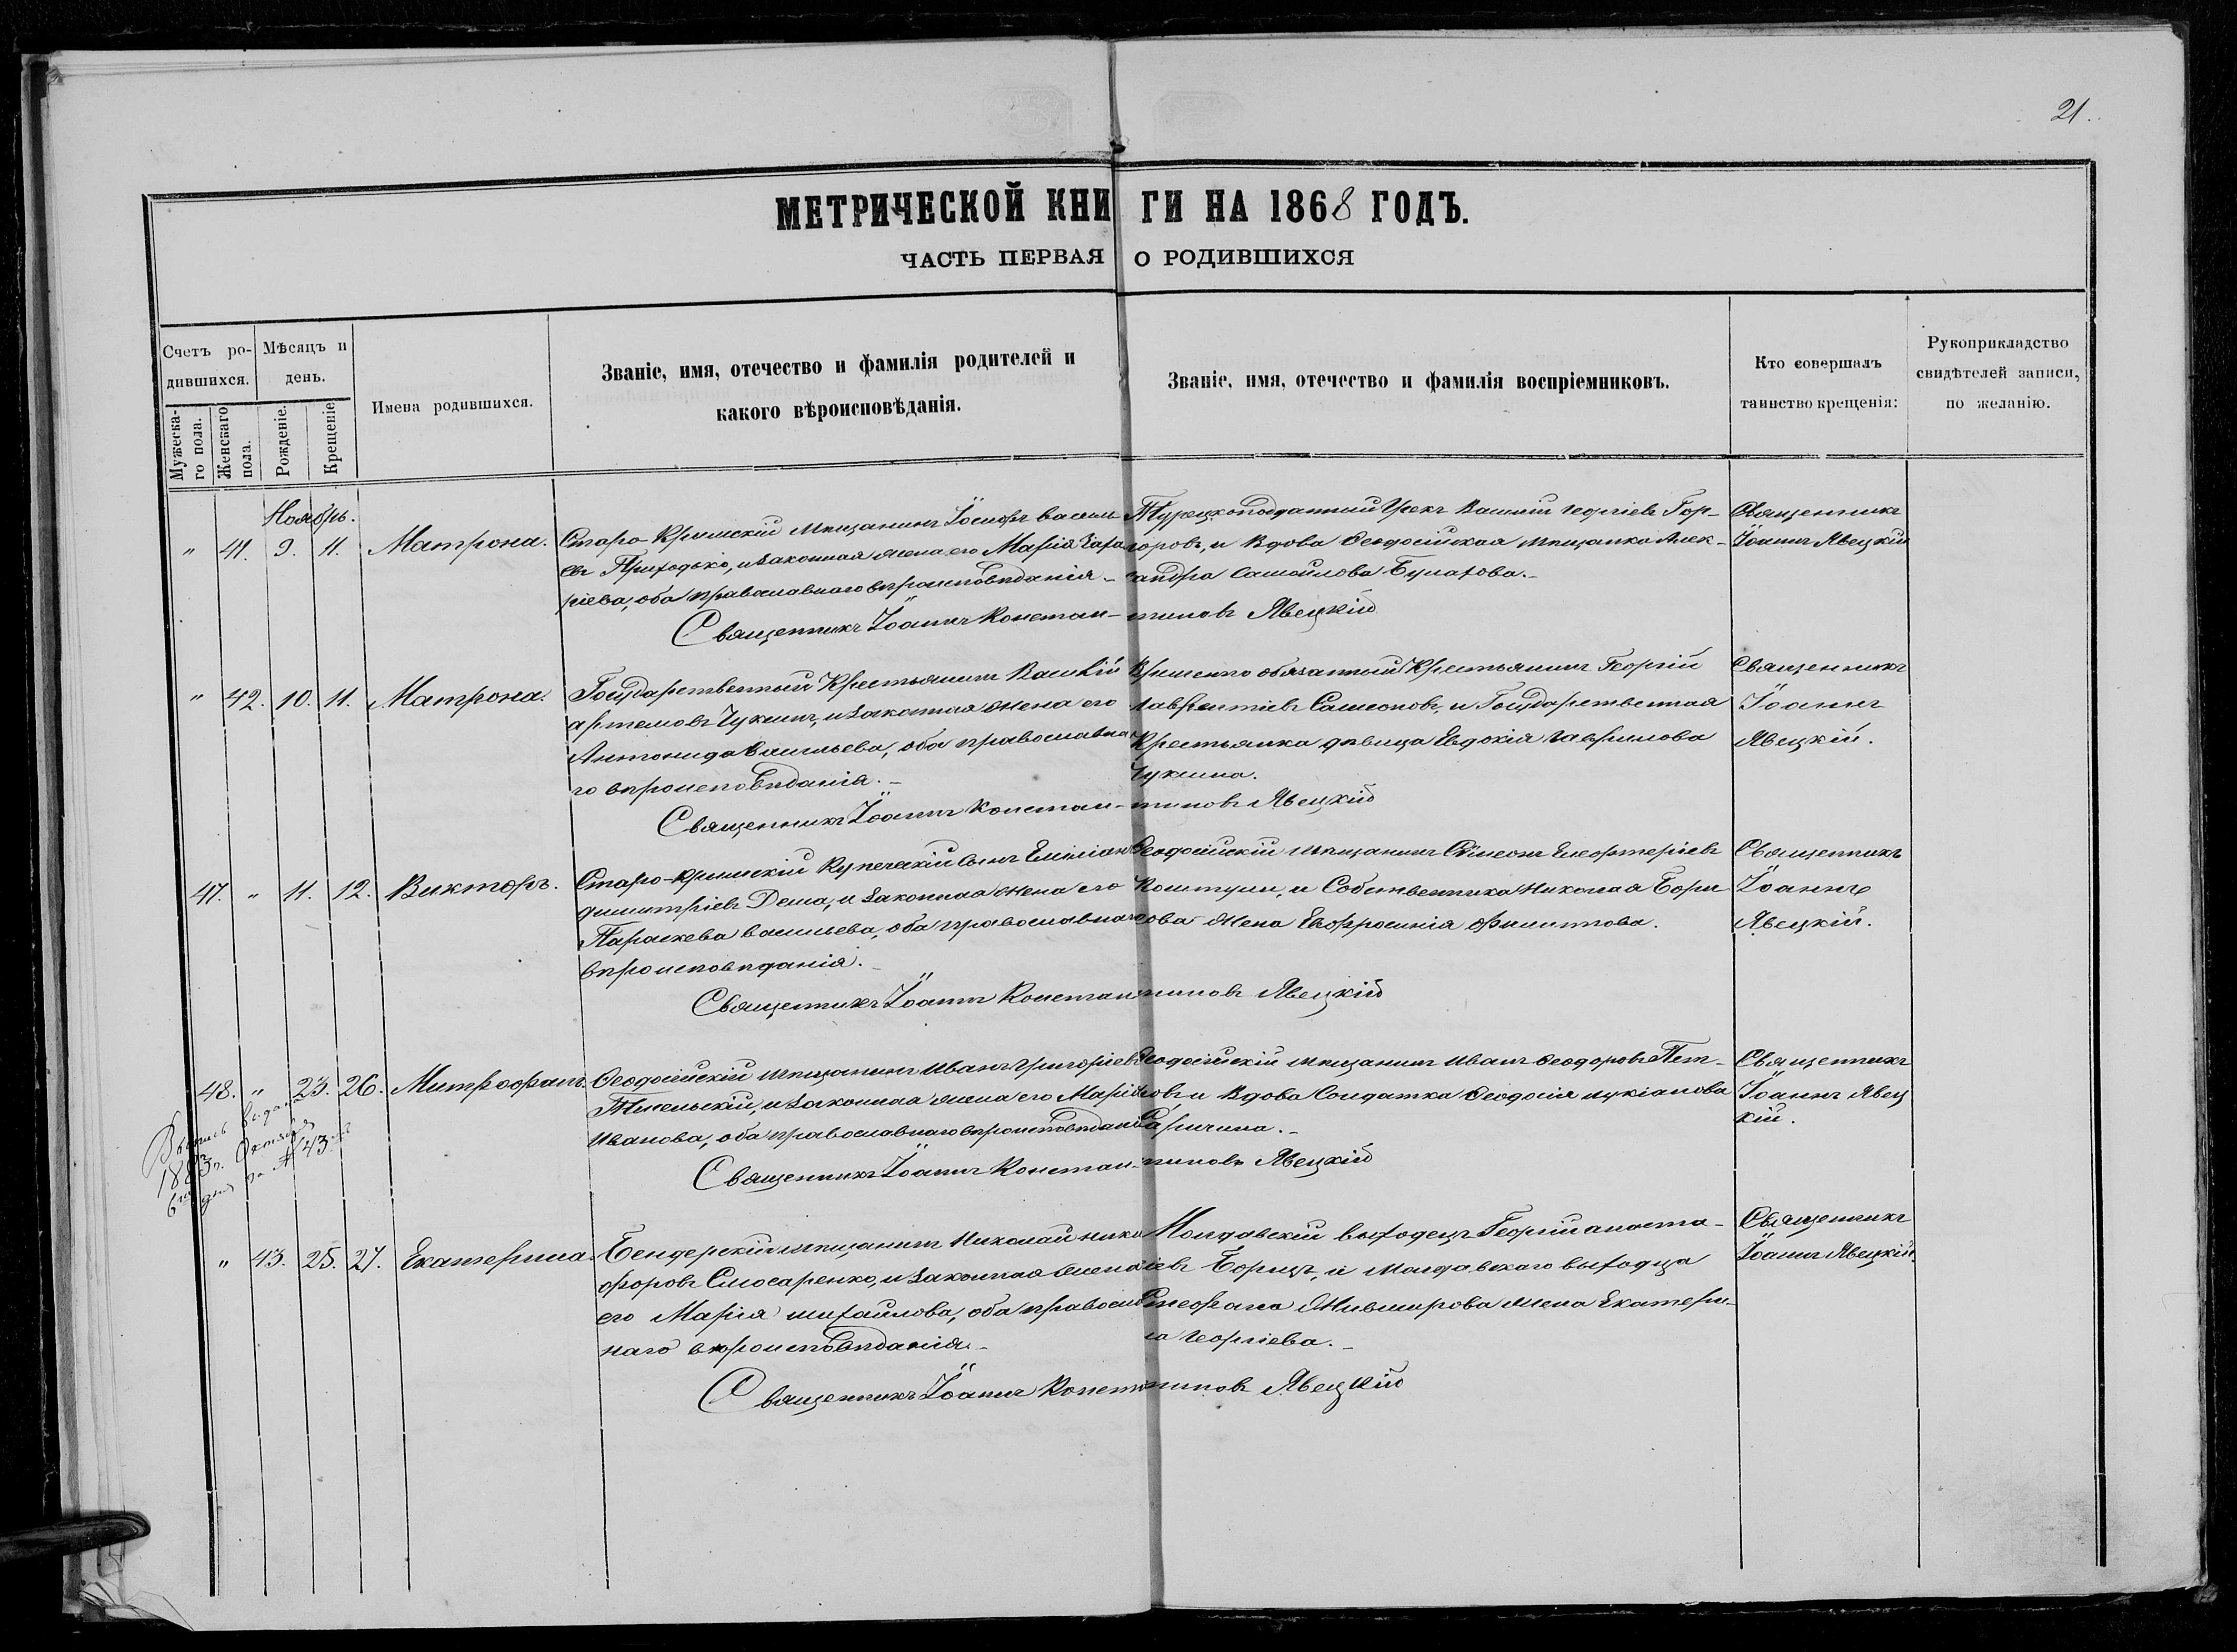 21.
МЕТРИЧЕСКОЙ КНИГИ НА 1868 ГОДЪ.
ЧАСТЬ ПЕРВАЯ О РОДИВШИХСЯ
Счетъ ро-
дившихся.
Мужеска-
го пола.
Женскаго
пола.
Мѣсяцъ и
день.
Рожденіе.
Крещеніе.
Имена родившихся.
Званіе, имя, отечество и фамилія родителей и
какого вѣроисповѣданія.
Званіе, имя, отечество и фамилія воспріемниковъ.
Кто совершалъ
таинство крещенія:
Рукоприкладство
свидѣтелей записи,
по желанію.
Ноябрь.
" 41. 9. 11. Матрона.
Старо-Крымскій мѣщанинъ Іосифъ Васильевъ
Приходько, и законная жена его Марія
оба православнаго вѣроисповѣданія.
Турецкоподданный Грекъ Василій Георгіевъ
и вдова Феодосійская мѣщанка Алек-
сандра Самойлова Булахова.
Священникъ
Іоаннъ Явецкій
Священникъ Іоаннъ Константиновъ Явецкій
" 42. 10. 11. Матрона.
Государственный Крестьянинъ Василій
Артемовъ Чукинъ, и законная жена его
Антонида Васильева, оба православна-
го вѣроисповѣданія.
Временно обязанный Крестьянинъ Георгій
Лаврентіевъ Самсоновъ, и Государственная
Крестьянка дѣвица Евдокія Гаврилова
Чукина.
Священникъ
Іоаннъ
Явецкій.
Священникъ Іоаннъ Константиновъ Явецкій
47. " 11. 12. Викторъ.
Старо-Крымскій Купеческій сынъ
Димитріевъ Деша, и законная жена его
Параскева Васильева, оба православнаго
вѣроисповѣданія.
Феодосійскій мѣщанинъ Сѵмеонъ Елевтеріевъ
и Собственника Николая
жена Евфросинія
Священникъ
Іоаннъ
Явецкій.
Священникъ Іоаннъ Константиновъ Явецкій
48. " 23. 26. Митрофанъ.
Феодосійскій мѣщанинъ Иванъ Григорьевъ
и законная жена его Марія
Иванова, оба православнаго вѣроисповѣданія
Феодосійскій мѣщанинъ Иванъ Феодоровъ Пет-
ровъ, и вдова Солдатка Феодосія Лукіанова
Священникъ
Іоаннъ Явец
кій.
Выпись выдана
1883 г. Октября
6го дня за № 43.
Священникъ Іоаннъ Константиновъ Явецкій
" 43. 25. 27. Екатерина.
Бендерскій мѣщанинъ Николай Ники-
форовъ Слюсаренко, и законная жена
его Марія Михайлова, оба православ-
наго вѣроисповѣданія.
Молдавскій выходецъ Георгій Анаста-
сіевъ Борищъ, и Молдавскаго выходца
Стефана жена Екатери-
на Георгіева.
Священникъ
Іоаннъ Явецкій.
Священникъ Іоаннъ Константиновъ Явецкій